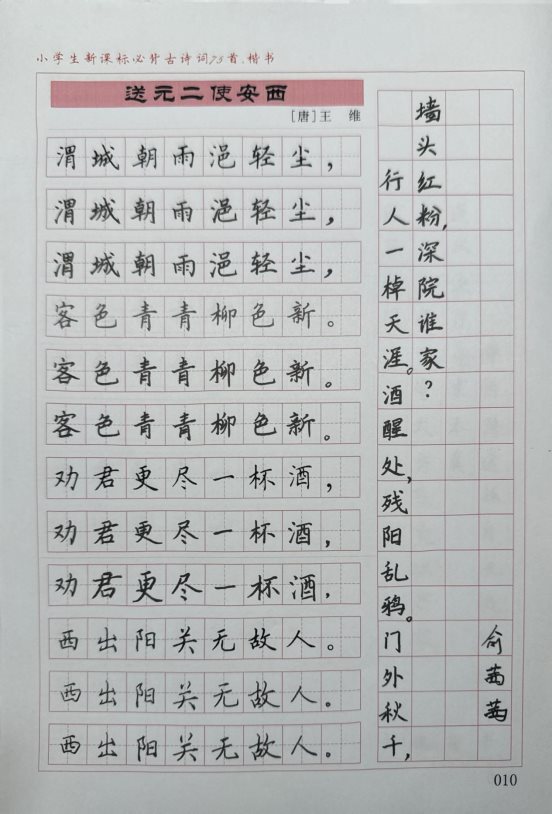 小学生新课标必背古诗词75首·楷书
送元二使安西
[唐]王 维
渭城朝雨浥轻尘，
渭城朝雨浥轻尘，
渭城朝雨浥轻尘，
客色青青柳色新。
客色青青柳色新。
客色青青柳色新。
劝君更尽一杯酒，
劝君更尽一杯酒，
劝君更尽一杯酒，
西出阳关无故人。
西出阳关无故人。
西出阳关无故人。
行人一棹天涯。酒醒处，残阳乱鸦。门外秋千，
墙头红粉，深院谁家？
俞茜茜
010